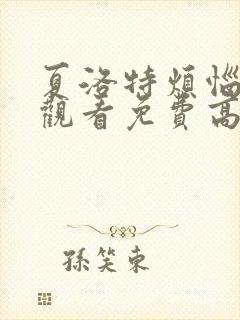 夏洛特煩惱
觀看免費高
孫笑東